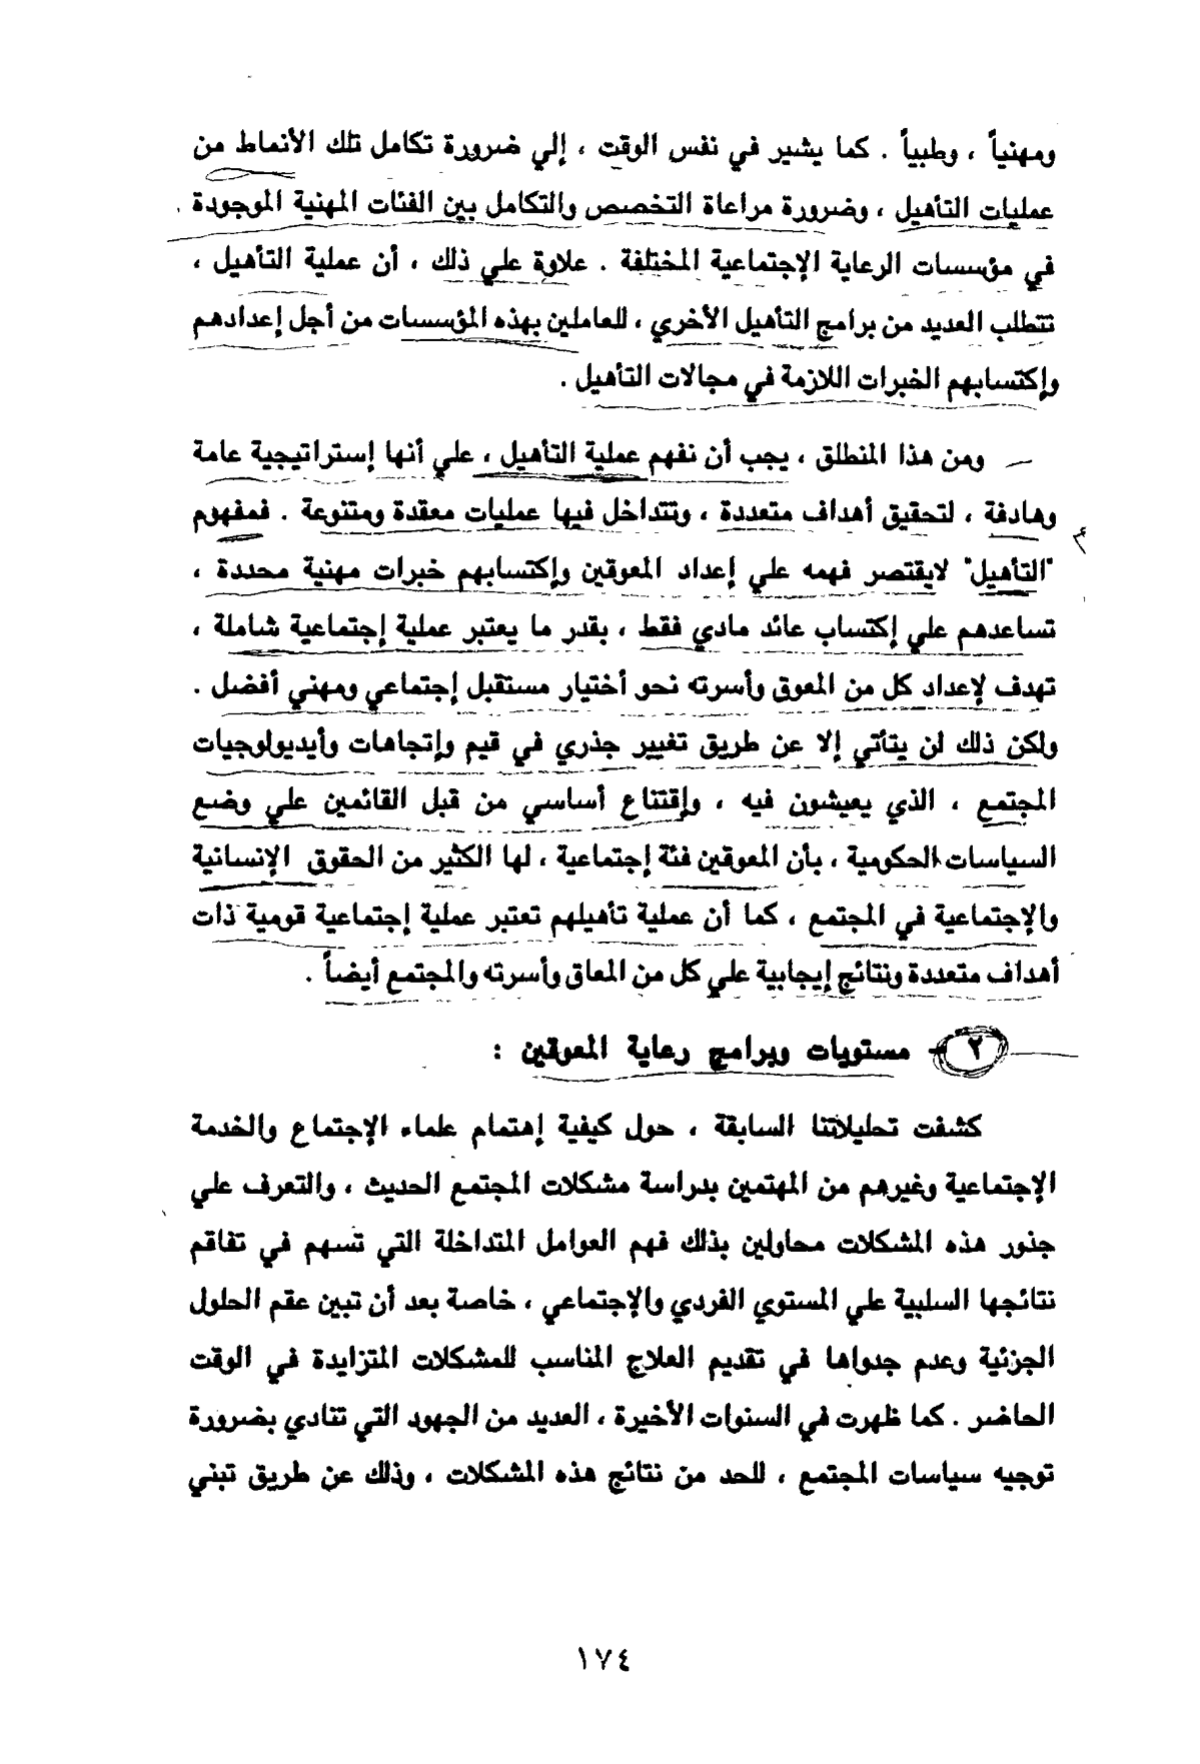 ومهنياً ، وطبياً . كما يشير في نفس الوقت ، إلي ضرورة تكامل تلك الأنماط من
عمليات التأهيل ، وضرورة مراعاة التخصص والتكامل بين الفئات المهنية الموجودة
في مؤسسات الرعاية الإجتماعية المختلفة . علاوة علي ذلك ، أن عملية التأهيل ،
تتطلب العديد من برامج التأهيل الأخري ، للعاملين بهذه المؤسسات من أجل إعدادهم
وإكتسابهم الخبرات اللازمة في مجالات التأهيل .
ومن هذا المنطلق ، يجب أن نفهم عملية التأهيل ، علي أنها إستراتيجية عامة
وهادفة ، لتحقيق أهداف متعددة ، وتتداخل فيها عمليات معقدة ومتنوعة . فمفهوم
"التأهيل" لايقتصر فهمه علي إعداد المعوقين وإكتسابهم خبرات مهنية محددة ،
تساعدهم علي إكتساب عائد مادي فقط ، بقدر ما يعتبر عملية إجتماعية شاملة ،
تهدف لإعداد كل من المعوق وأسرته نحو أختيار مستقبل إجتماعي ومهني أفضل .
ولكن ذلك لن يتأتي إلا عن طريق تغيير جذري في قيم وإتجاهات وأيديولوجيات
المجتمع ، الذي يعيشون فيه ، وإقتناع أساسي من قبل القائمين علي وضع
السياسات الحكومية ، بأن المعوقين فئة إجتماعية ، لها الكثير من الحقوق الإنسانية
والإجتماعية في المجتمع ، كما أن عملية تأهيلهم تعتبر عملية إجتماعية قومية ذات
أهداف متعددة ونتائج إيجابية علي كل من المعاق وأسرته والمجتمع أيضاً .
٢ - مستويات وبرامج رعاية المعوقين :
كشفت تحليلاتنا السابقة ، حول كيفية إهتمام علماء الإجتماع والخدمة
الإجتماعية وغيرهم من المهتمين بدراسة مشكلات المجتمع الحديث ، والتعرف علي
جذور هذه المشكلات محاولين بذلك فهم العوامل المتداخلة التي تسهم في تفاقم
نتائجها السلبية علي المستوي الفردي والإجتماعي ، خاصة بعد أن تبين عقم الحلول
الجزئية وعدم جدواها في تقديم العلاج المناسب للمشكلات المتزايدة في الوقت
الحاضر . كما ظهرت في السنوات الأخيرة ، العديد من الجهود التي تنادي بضرورة
توجيه سياسات المجتمع ، للحد من نتائج هذه المشكلات ، وذلك عن طريق تبني
١٧٤